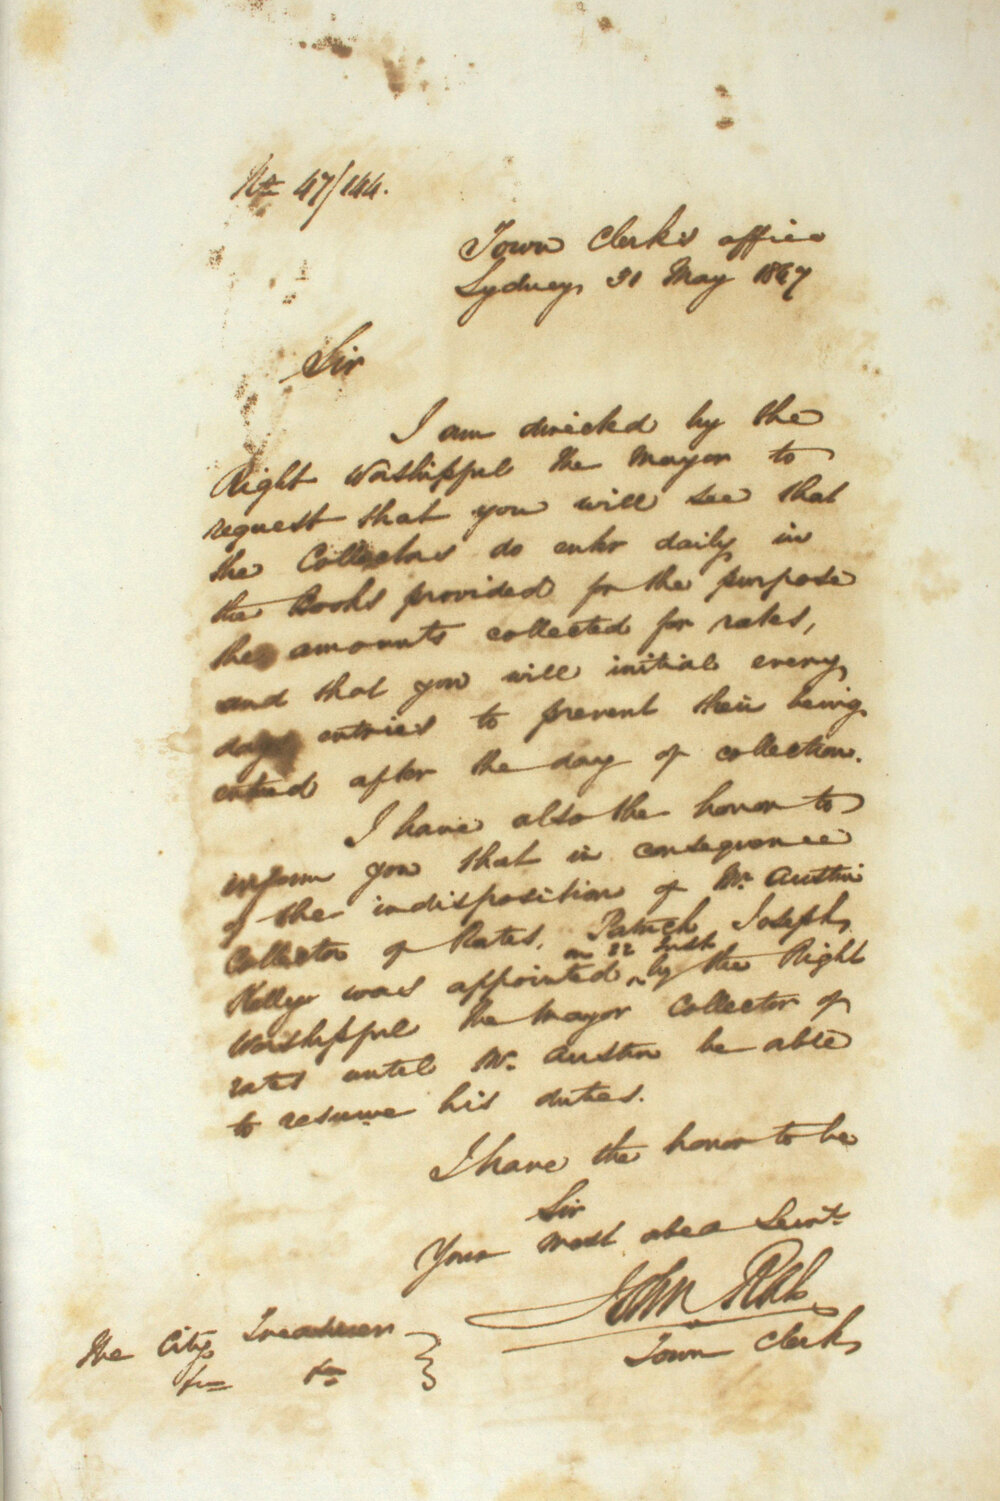 No 47/144.
Town Clerk's office
Sydney, 31 May 1847
Sir
I am directed by the
Right Worshipful the Mayor to
request that you will see that
the Collectors do enter daily in
the Books provided for the purpose
the amounts collected for rates,
and that you will initial every
days entries to prevent their being
entered after the day of collection.
I have also the honor to
inform you that in consequence
of the indisposition of Mr. Austin
Collector of Rates, Patrick Joseph
on 22 Inst
Kelly was appointed ^ by the Right
Worshipful the Mayor Collector of
rates until Mr. Austin be able
to resume his duties.
I have the honor to be
Sir
Your most obed Servt.
John
Town Clerk
The City Treasurer